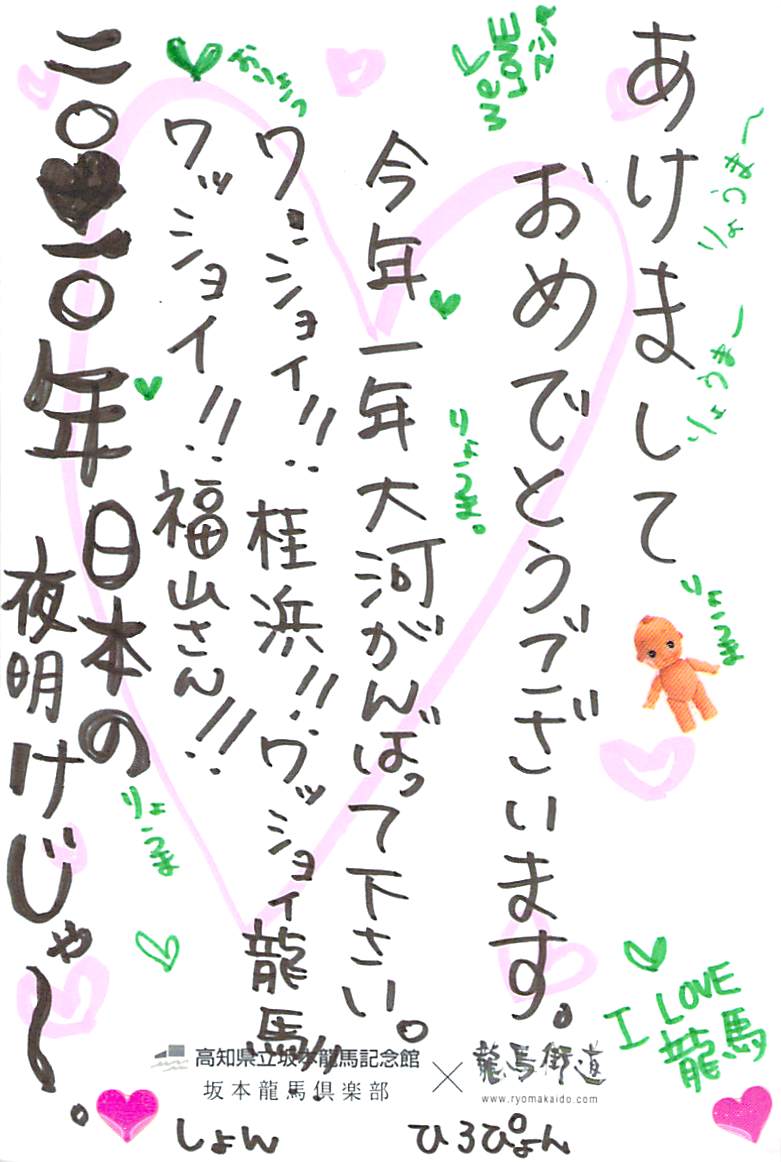 あけまして
おめでとうございます。
今年一年大河がんばって下さい。
ワッショイ!! 桂浜!! ワッショイ龍馬!!
ワッショイ!! 福山さん!!
二〇一〇年 日本の
夜明けじゃ〜。
りょうま〜
りょうま〜
We LOVE マシャ
りょうま。
りょうま
りょうま
I LOVE
龍馬
高知県立坂本龍馬記念館
坂本龍馬倶楽部
×
龍馬街道
www.ryomakaido.com
しょん
ひろぴょん